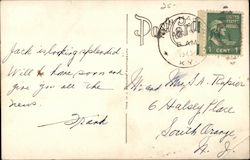 25-
Post Card
8 AM
KY.
1 CENT 1
Jack is looking splendid.
Will have soon and
give you all the
news.
Frank
Mr and Mrs J. A.
6 Halsey Place
South Orange
N. J.